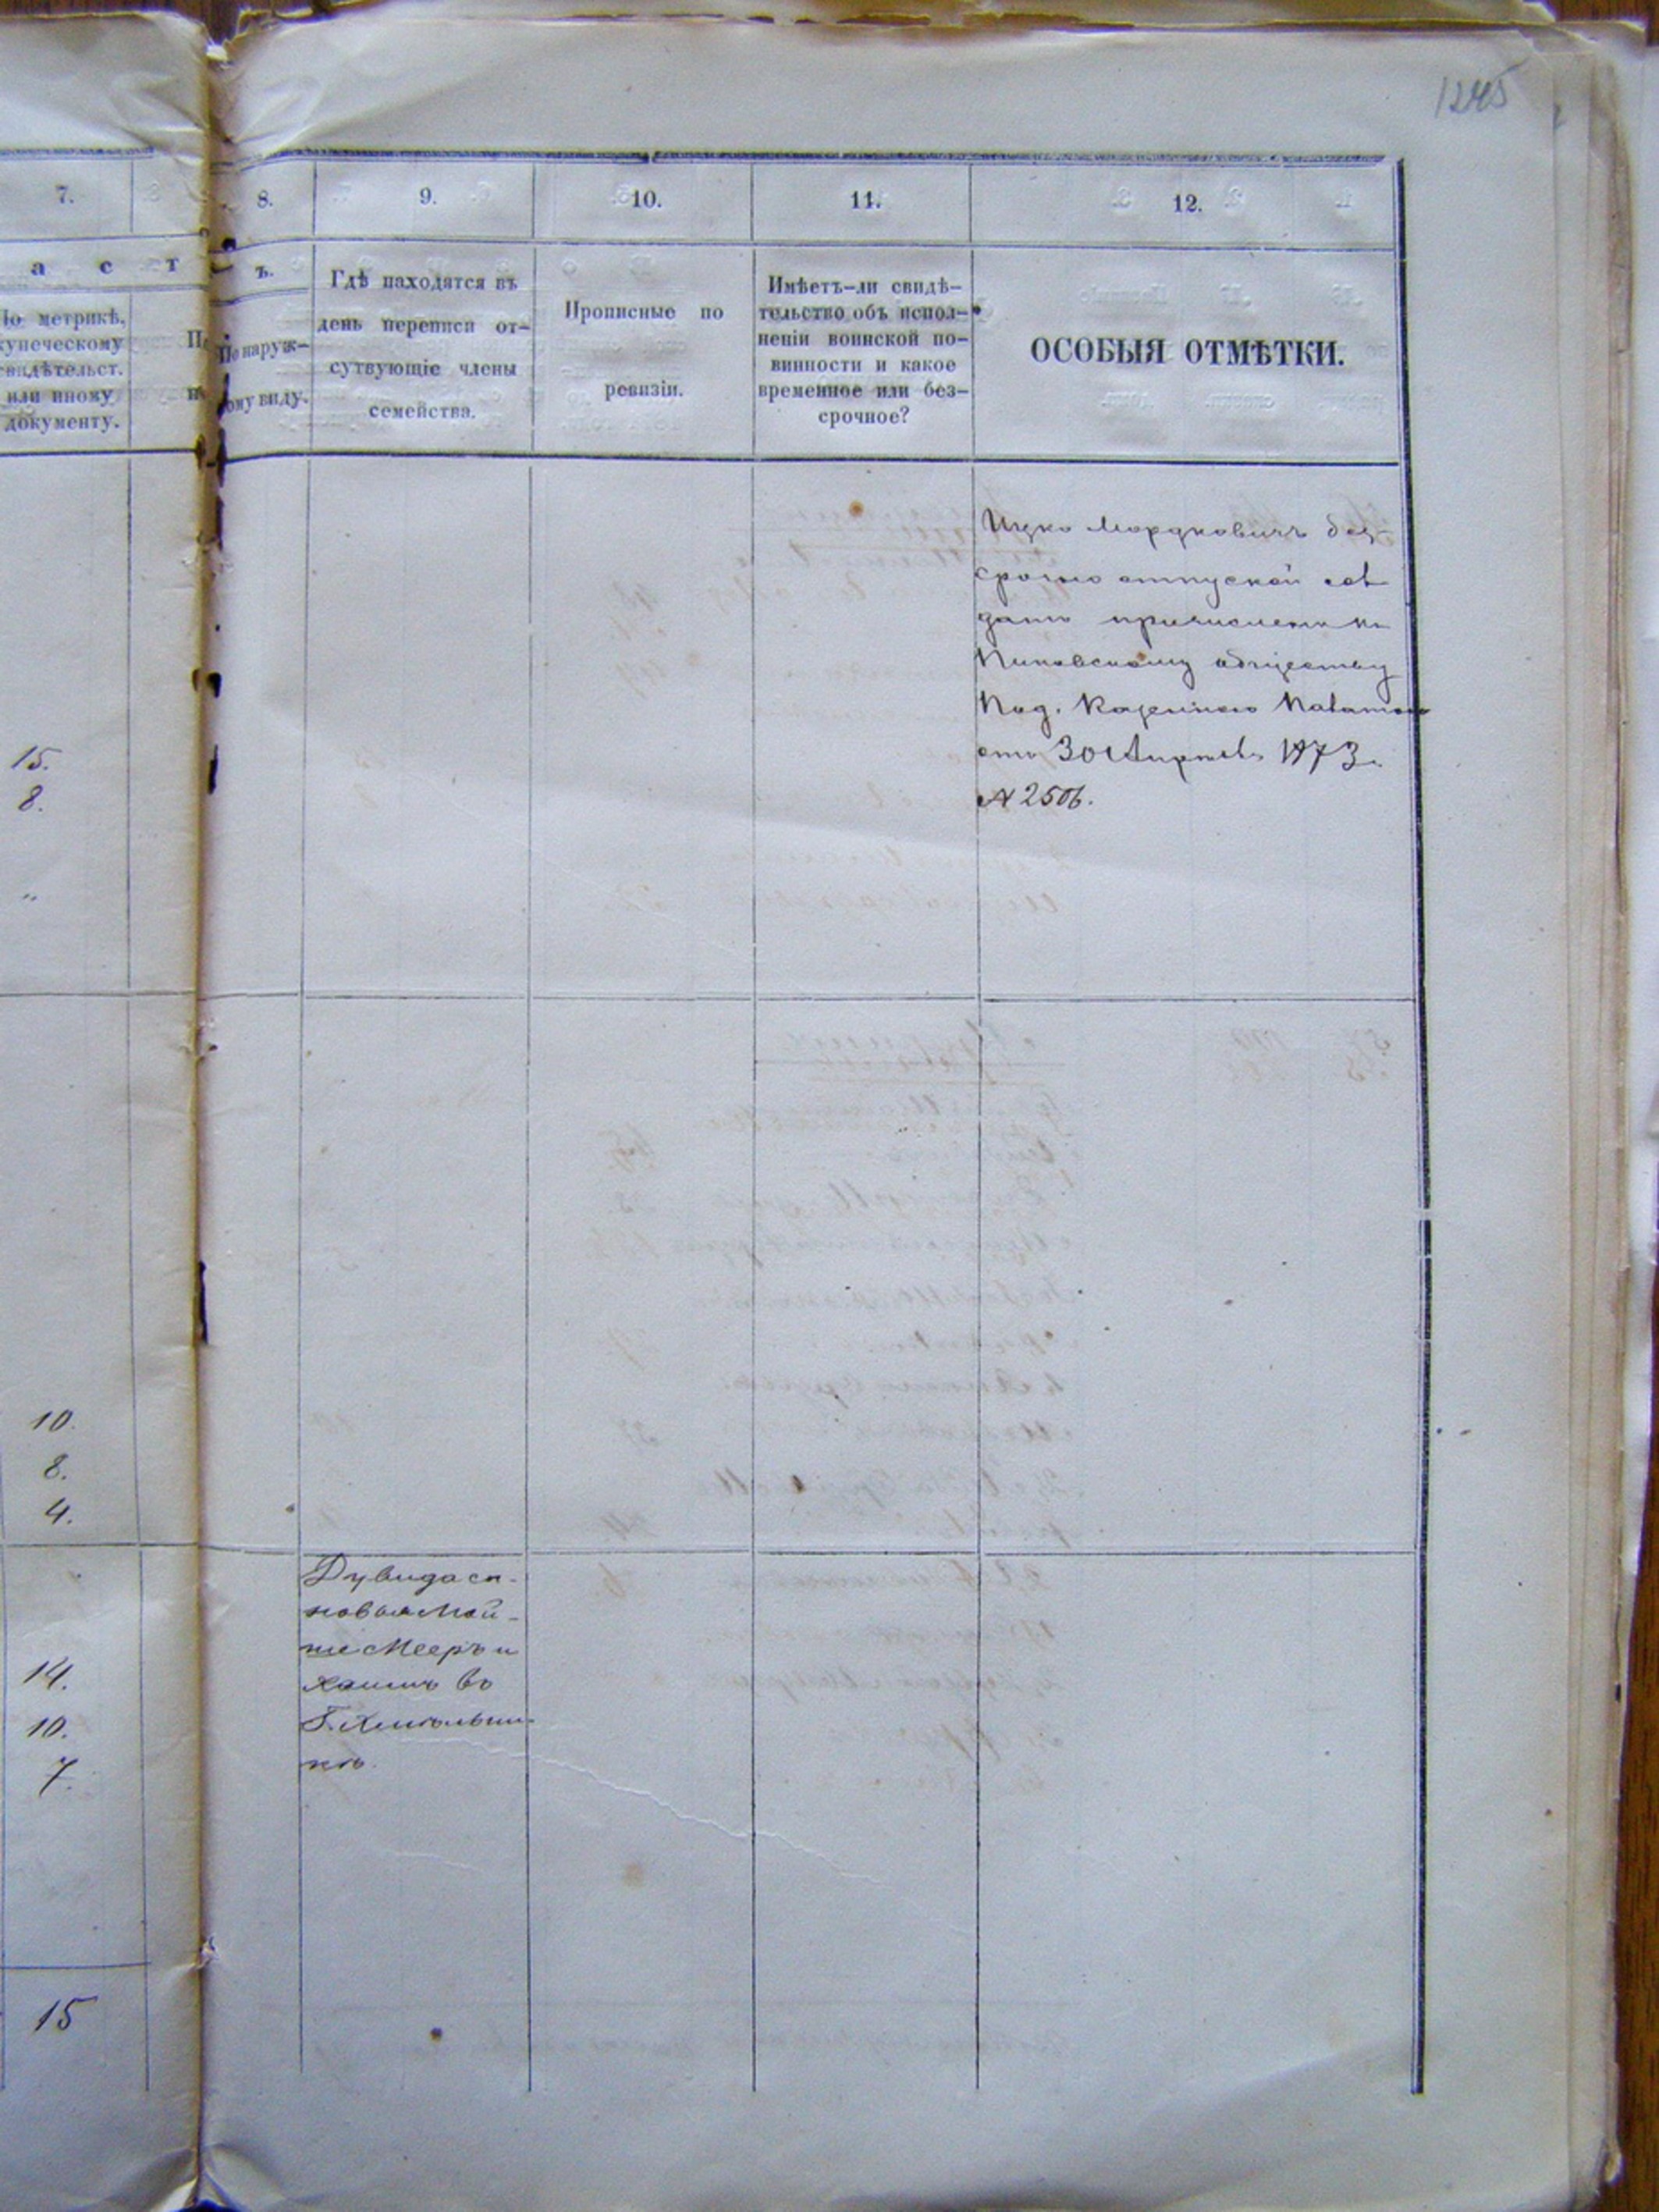 1245
7.
8.
9.
10.
11.
12.
а с т
ъ.
По метрикѣ,
купеческому
свидѣтельст.
или иному
документу.
По наруж-
ому виду.
Гдѣ находятся въ
день переписи от-
сутвующіе члены
семейства.
Прописные по
ревизіи.
Имѣетъ-ли свидѣ-
тельство объ испол-
неніи воинской по-
винности и какое
временное или без-
срочное?
ОСОБЫЯ ОТМѢТКИ.
Ицко Мордковичъ без-
срочно отпускной сол
датъ причисленъ къ
Пиковскому обществу
Под. Казенною Палатою
отъ 30 Апрѣля 1873 г.
№ 2506.
15.
8.
"
10.
8.
4.
Дувида сы-
новья Мой-
ше Мееръ и
Хаимъ въ
Г. Хмѣльни-
кѣ.
14.
10.
7.
15